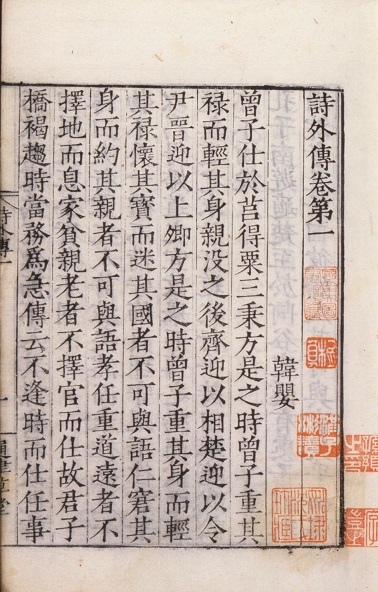 詩外傳卷第一
韓嬰
曾子仕於莒得粟三秉方是之時曾子重其
禄而輕其身親没之後齊迎以相楚迎以令
尹晉迎以上卿方是之時曾子重其身而輕
其禄懷其寳而迷其國者不可與語仁窘其
身而約其親者不可與語孝任重道遠者不
擇地而息家貧親老者不擇官而仕故君子
橋褐趨時當務爲急傳云不逢時而仕任事
詩外傳一
一